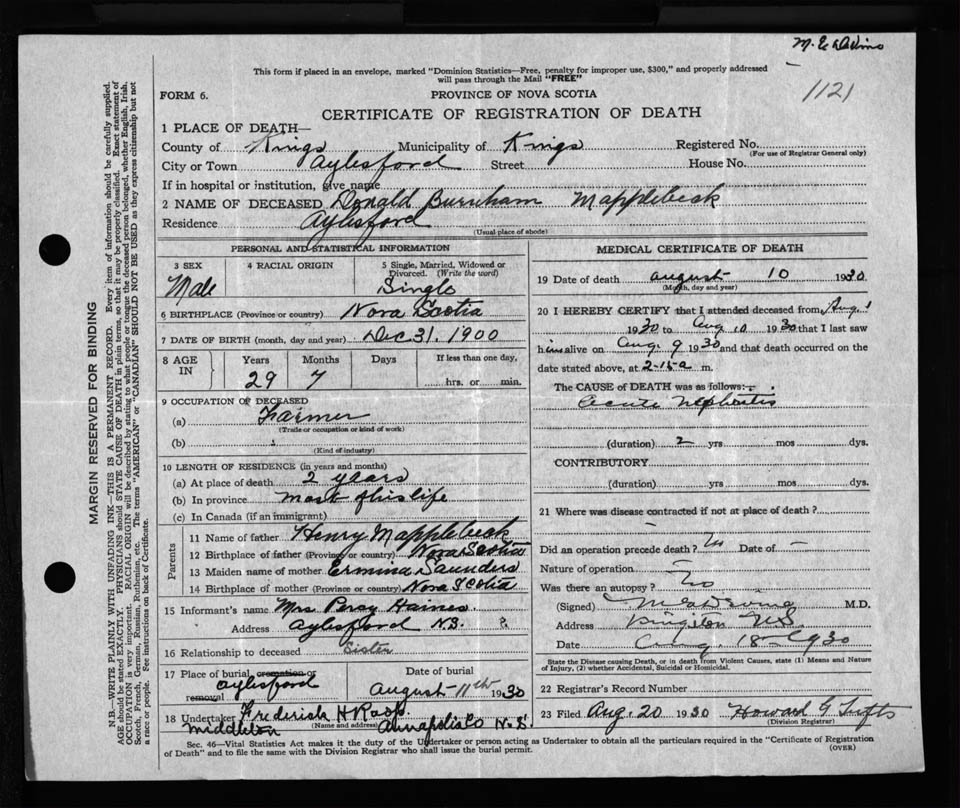 This form if placed in an envelope, marked "Dominion Statistics—Free, penalty for improper use, $300," and properly addressed
will pass through the Mail "FREE"
1121
FORM 6.
PROVINCE OF NOVA SCOTIA
CERTIFICATE OF REGISTRATION OF DEATH
1 PLACE OF DEATH—
County of Kings Municipality of Kings Registered No.
(For use of Registrar General only)
City or Town Aylesford Street House No.
If in hospital or institution, give name
2 NAME OF DECEASED Donald Burnham Mapplebeck
Residence Aylesford
(Usual place of abode)
PERSONAL AND STATISTICAL INFORMATION
3 SEX
Male
4 RACIAL ORIGIN
5 Single, Married, Widowed or
Divorced. (Write the word)
Single
6 BIRTHPLACE (Province or country) Nova Scotia
7 DATE OF BIRTH (month, day and year) Dec 31, 1900
8 AGE
IN
Years Months Days If less than one day,
29 7 hrs. or min.
9 OCCUPATION OF DECEASED
(a) Farmer
(Trade or occupation or kind of work)
(b)
(Kind of industry)
10 LENGTH OF RESIDENCE (in years and months)
(a) At place of death 2 years
(b) In province most of his life
(c) In Canada (if an immigrant)
Parents
11 Name of father Henry Mapplebeck
12 Birthplace of father (Province or country) Nova Scotia
13 Maiden name of mother Ermina Saunders
14 Birthplace of mother (Province or country) Nova Scotia
15 Informant's name Mrs Percy Haines
Address Aylesford N.S.
16 Relationship to deceased Sister
17 Place of burial cremation or
removal Aylesford
Date of burial
August 11th 1930
18 Undertaker Frederick H Roop
(Name and address)
Middleton Annapolis Co N.S.
MEDICAL CERTIFICATE OF DEATH
19 Date of death August 10 1930
(Month, day and year)
20 I HEREBY CERTIFY that I attended deceased from Aug 1
1930 to Aug 10 1930 that I last saw
him alive on Aug. 9 1930 and that death occurred on the
date stated above, at 2-15 a m.
The CAUSE OF DEATH was as follows:
Acute Nephritis
(duration) 2 yrs mos dys.
CONTRIBUTORY
(duration) yrs mos dys.
21 Where was disease contracted if not at place of death?
Did an operation precede death? Date of —
Nature of operation —
Was there an autopsy? No
(Signed) M.D.
Address Kingston NS
Date Aug. 18 1930
State the Disease causing Death, or in death from Violent Causes, state (1) Means and Nature
of Injury, (2) whether Accidental, Suicidal or Homicidal.
22 Registrar's Record Number
23 Filed Aug. 20 1930 Howard G
(Division Registrar)
Sec. 46—Vital Statistics Act makes it the duty of the Undertaker or person acting as Undertaker to obtain all the particulars required in the "Certificate of Registration
of Death" and to file the same with the Division Registrar who shall issue the burial permit.
(OVER)
MARGIN RESERVED FOR BINDING
N.B.—WRITE PLAINLY WITH UNFADING INK—THIS IS A PERMANENT RECORD. Every item of information should be carefully supplied.
AGE should be stated EXACTLY. PHYSICIANS should STATE CAUSE OF DEATH in plain terms, so that it may be properly classified. Exact statement of
OCCUPATION is very important. RACIAL ORIGIN will be described by stating to what people or tongue the deceased person belonged, whether English, Irish,
Scotch, French, German, Russian, Ruthenian, etc. The terms "AMERICAN" or "CANADIAN" SHOULD NOT BE USED as they express citizenship but not
a race or people. Fee instructions on back of Certificate.